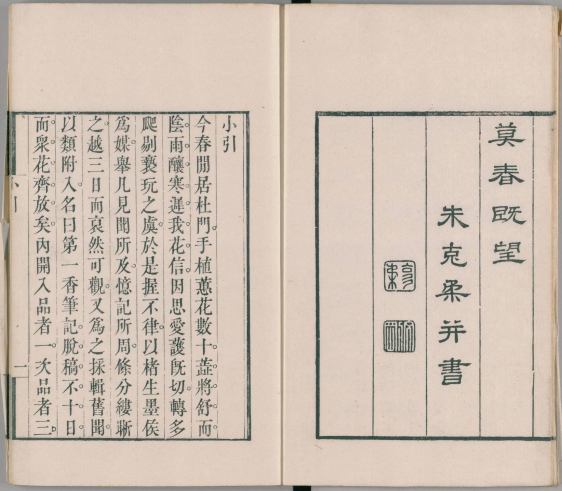 莫春既望
朱克柔并書
小引
今春閒居杜門。手植蕙花數十葢。將舒而
陰雨釀寒。遲我花信。因思愛護既切。轉多
爬剔褻玩之虞。於是握不律。以楮生墨侯
爲媒。舉凡見聞所及。憶記所周。條分縷晰
之。越三日而裒然可觀。又爲之採輯舊聞。
以類附入。名曰第一香筆記。脫稿不十日。
而衆花齊放矣。內開入品者一。次品者三。
小引
一